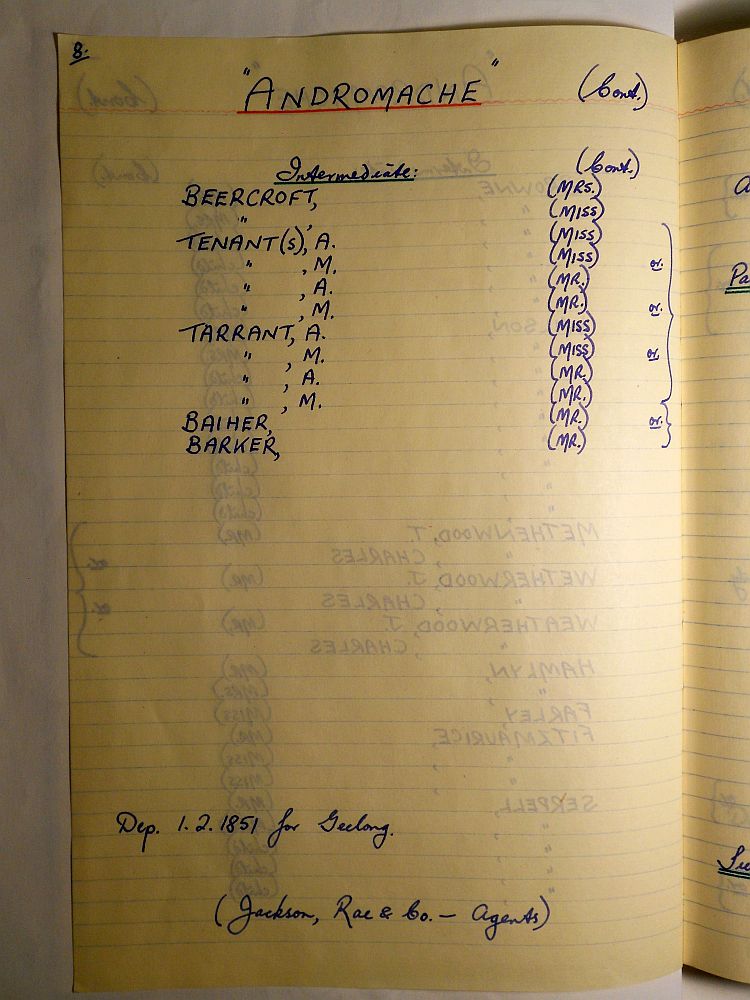 8.
"ANDROMACHE" (Cont.)
Intermediate: (Cont.)
BEERCROFT, (MRS.)
" , (MISS)
TENANT(S), A. (MISS)
" , M. (MISS) or.
" , A. (MR.)
" , M. (MR.) or.
TARRANT, A. (MISS)
" , M. (MISS) or.
" , A. (MR.)
" , M. (MR.)
BAIHER, (MR.) or.
BARKER, (MR.)
Dep. 1.2.1851 for Geelong.
(Jackson, Rae & Co. — Agents)